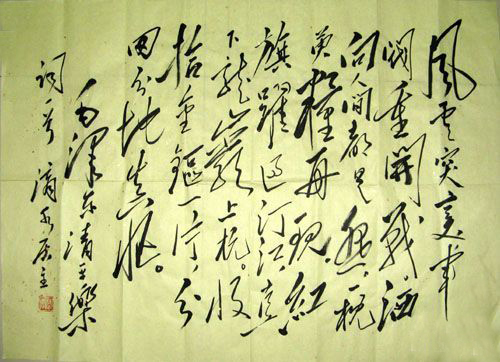 風云突变軍
閥重開戰。洒
向人間都是怨，一枕
黄粱再現。紅
旗躍过汀江，直
下龍巖上杭。收
拾金甌一片，分
田分地真忙。
毛澤东清平樂
词一首 居主